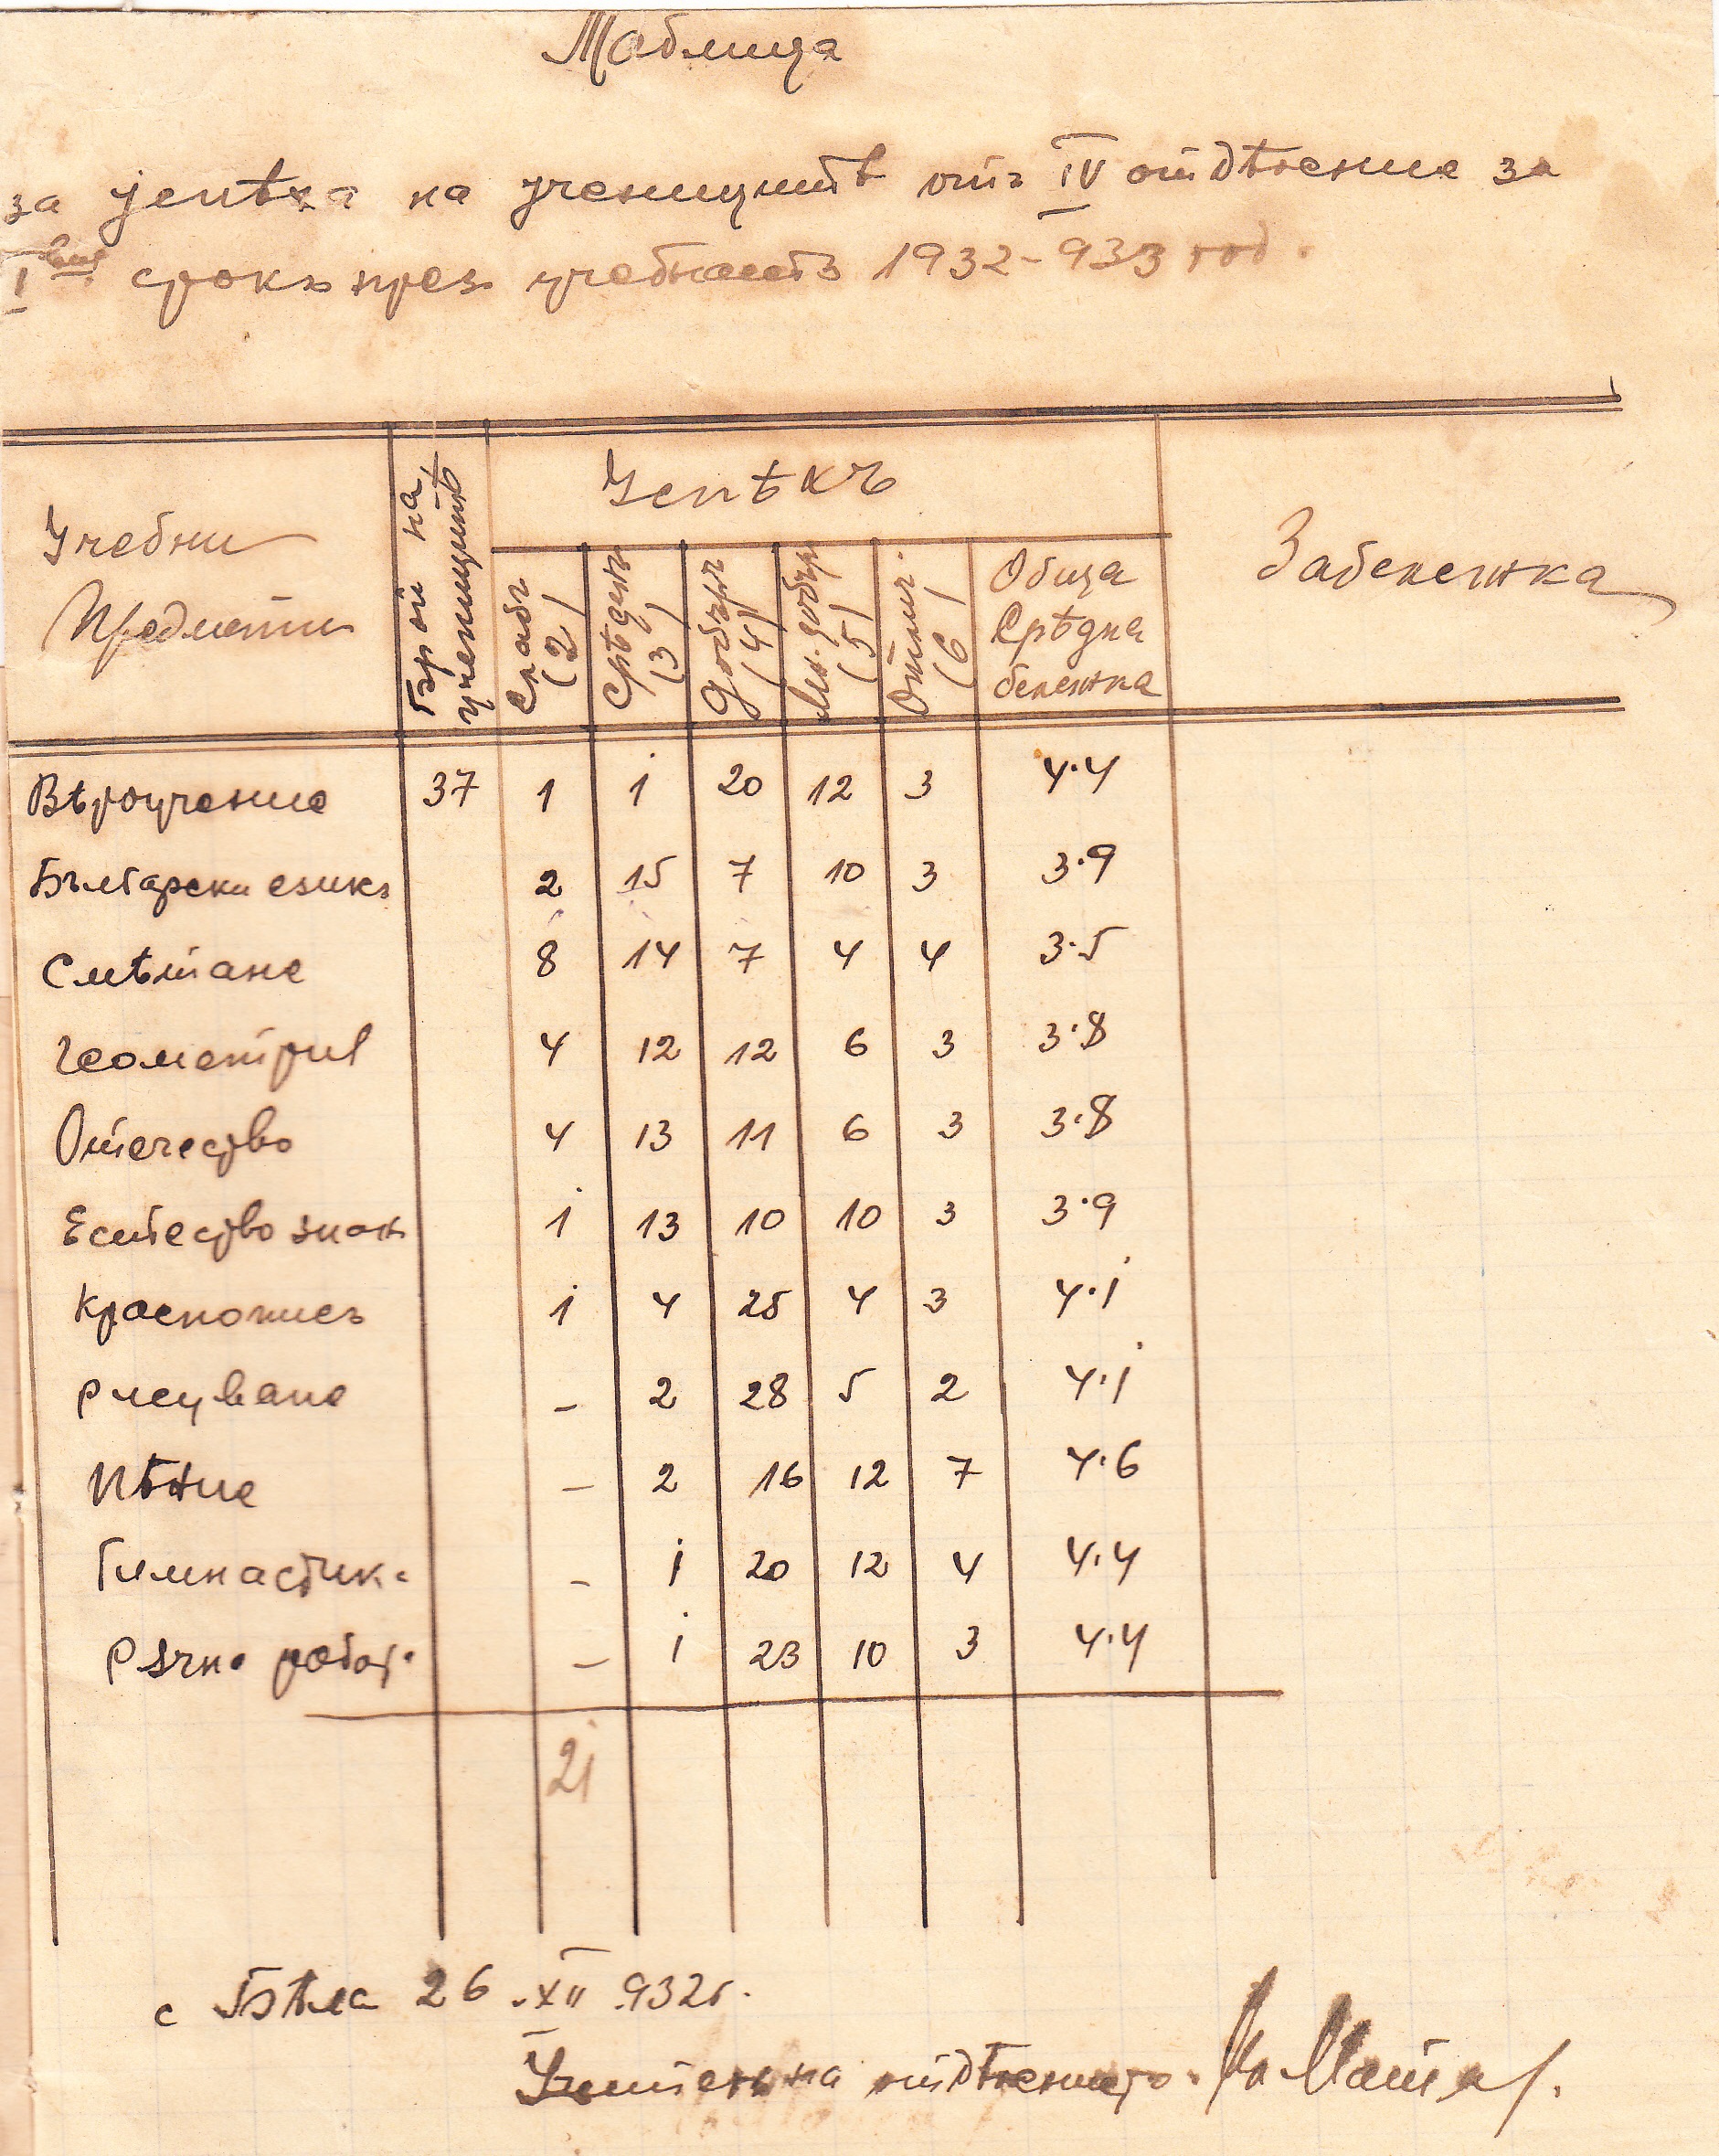 Таблица
за успѣха на ученицитѣ отъ IV отдѣление за
I вия срокъ презъ учебната 1932-933 год.
Учебни Предмети
Брой на ученицитѣ
Успѣхъ
Забележка
Слабъ (2)
Срѣденъ (3)
Добъръ (4)
Мн. добъръ (5)
Отлич. (6)
Обща Срѣдна бележка
Вѣроучение 37 1 1 20 12 3 4.4
Български езикъ 2 15 7 10 3 3.9
Смѣтане 8 14 7 4 4 3.5
Геометрия 4 12 12 6 3 3.8
Отечество 4 13 11 6 3 3.8
Естествознан 1 13 10 10 3 3.9
Краснописъ 1 4 25 4 3 4.1
Рисуване - 2 28 5 2 4.1
Пѣние - 2 16 12 7 4.6
Гимнастик. - 1 20 12 4 4.4
Рѫчно работ. - 1 23 10 3 4.4
21
с Бѣла 26.XII.932г.
Учитель на отдѣлението: